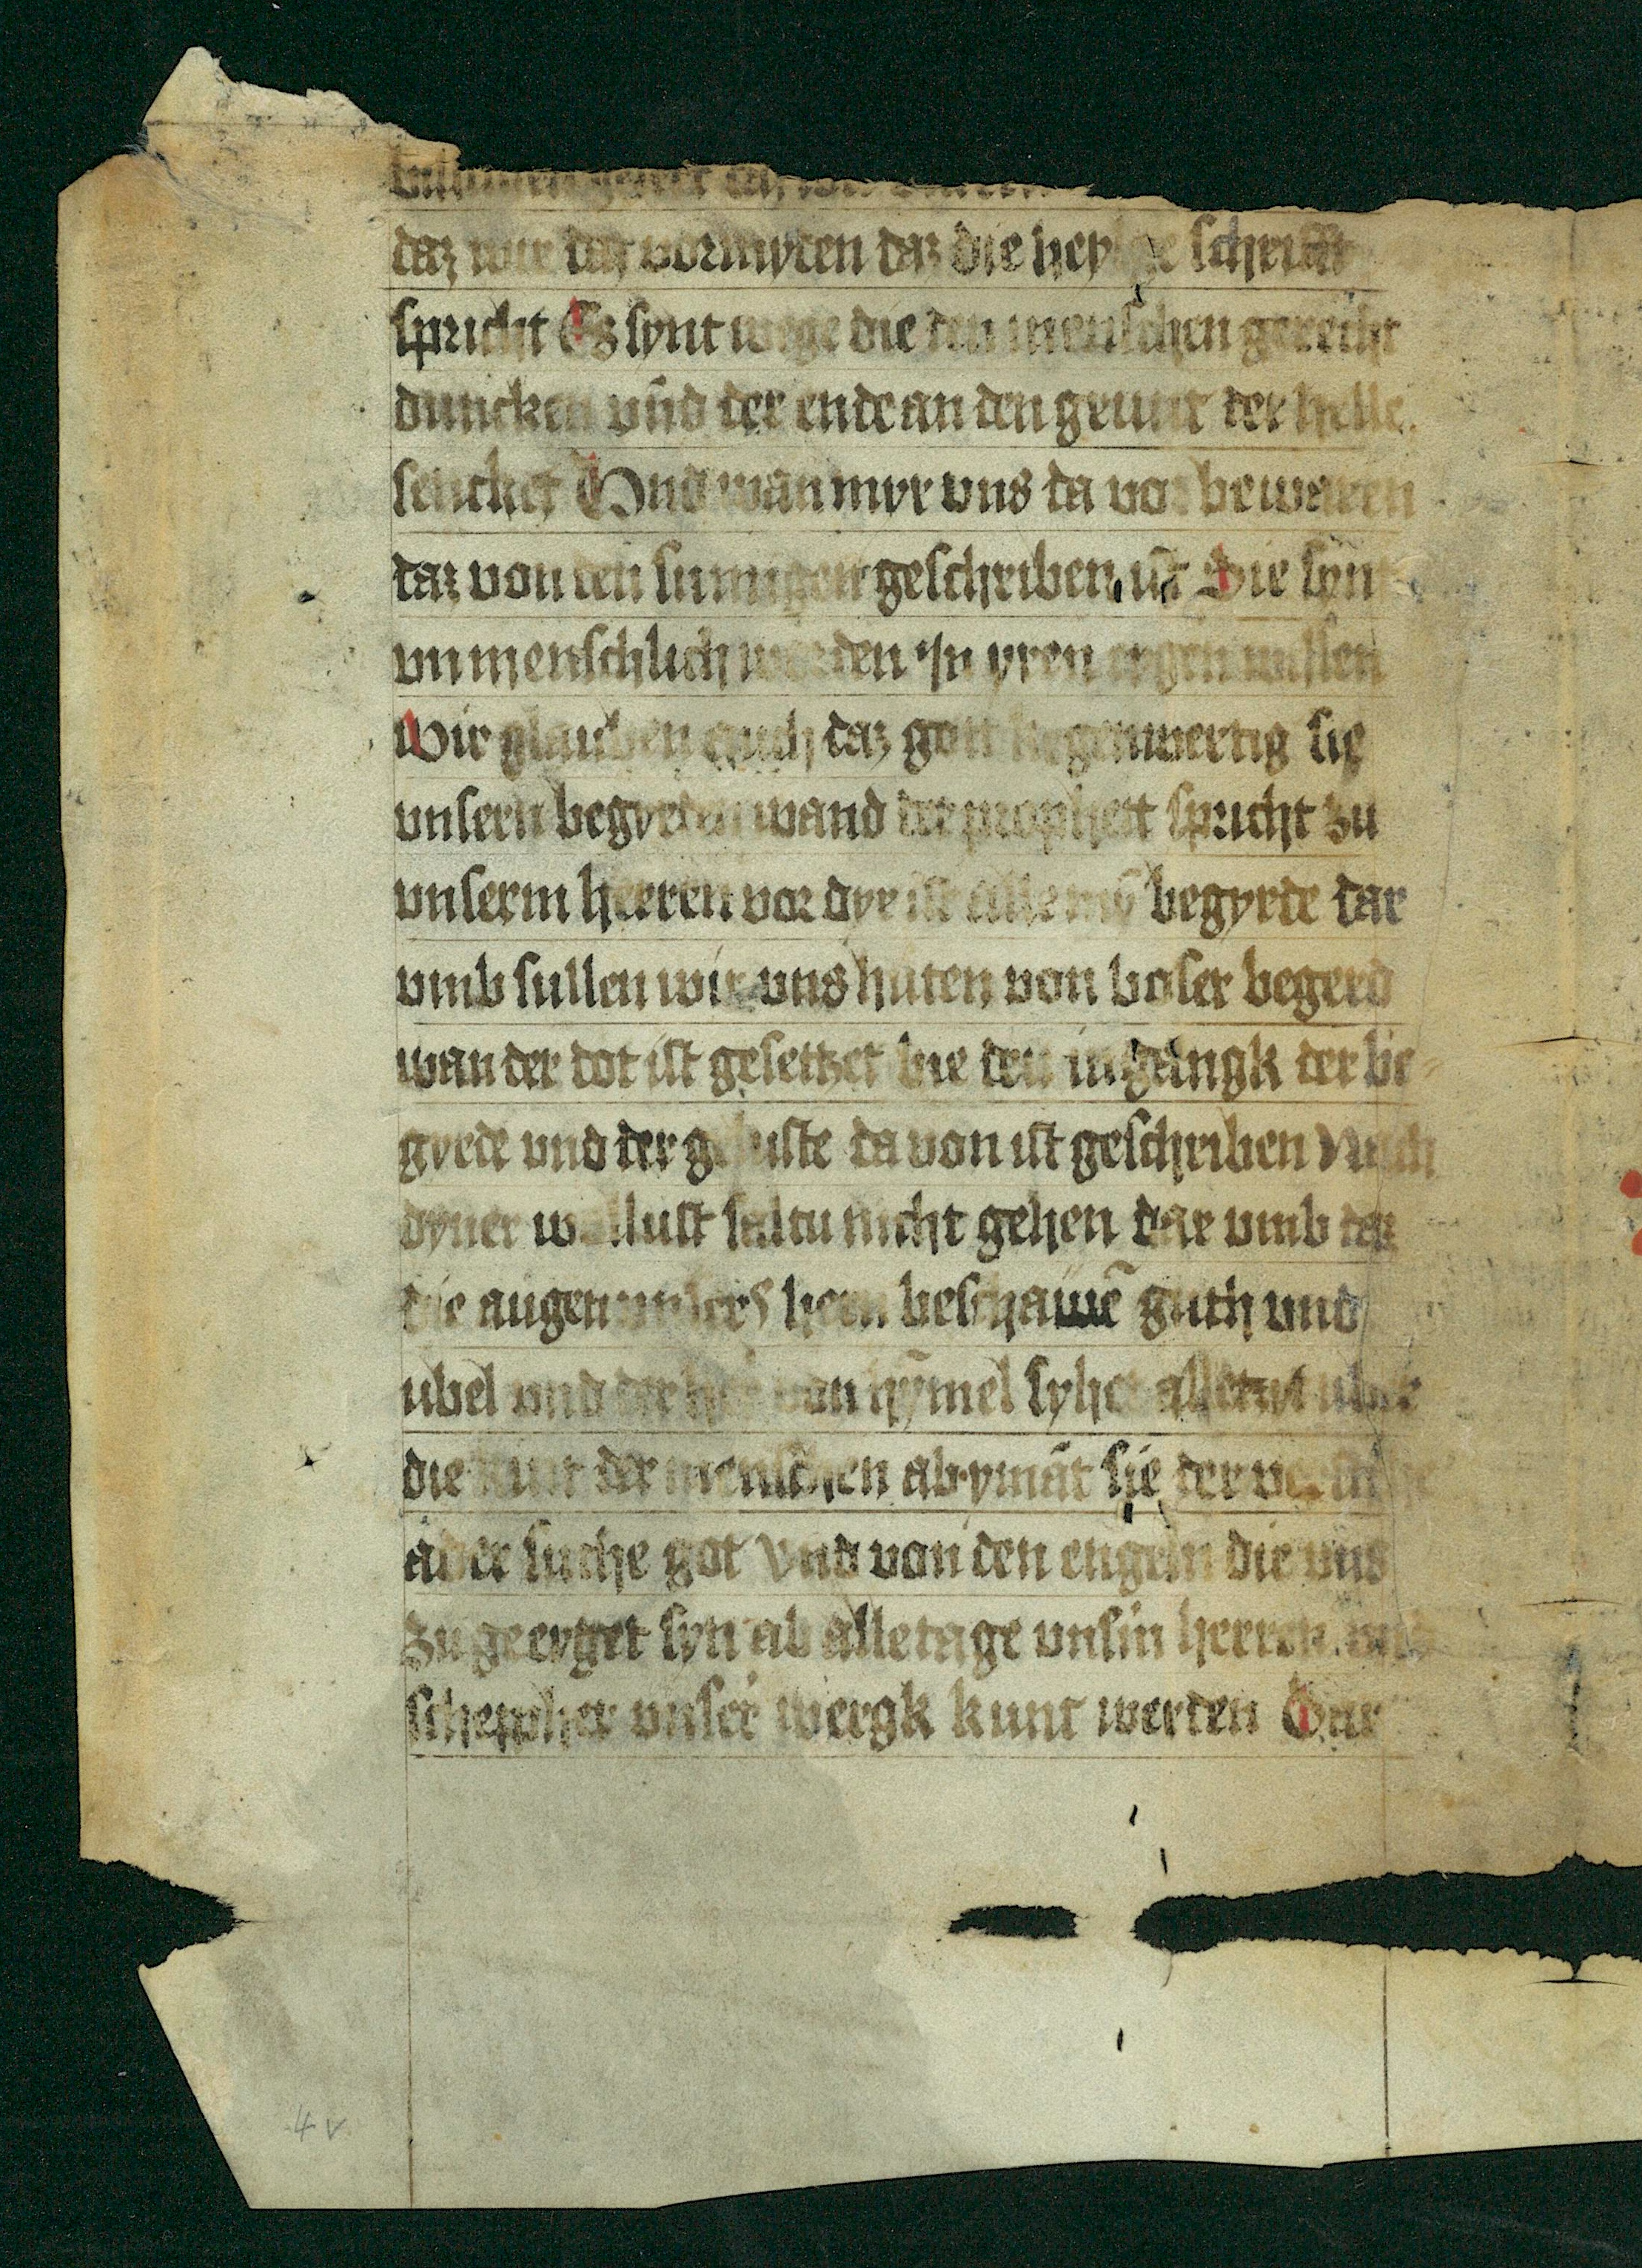 daz wir daz vormyden daz die heylige schrifft
spricht Ez synt wege die den menschen gerecht
duncken vnd der ende an den grunt der helle
sencket Vnd wan myr vns da vor bewaren
daz von den sumigen geschriben ist Die synt
vnmenschlich worden yn yren eygen willen
Wir glauben auch daz gott kegenwertig sie
vnsern begyrden wand der prophett spricht zu
vnserm herren vor dyr ist alle myn begyrde dar
vmb sullen wir vns huten von boser begerd
wan der dot ist gesetzet bie den ingangk der be-
gyrde vnd der geluste da von ist geschriben Nach
dyner wollust saltu nicht gehen dar vmb daz
die augen vnsers hern beschauwē guth vnd
ubel vnd der her von hȳmel syhet alletzyt uber
die kint der menschen ab ymāt sie der vorste
ader suche got Vnd von den engeln die vns
zu geeyget syn ab alle tage vnsm herren
schepher vnser wergk kunt werden Dar
4v